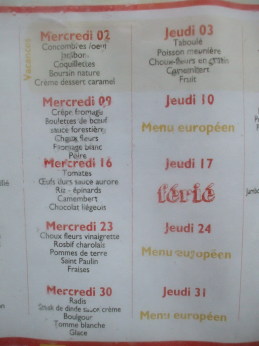 Vacances
Mercredi 02
Concombres
Jambon
Coquillettes
Boursin nature
Crème dessert caramel
Jeudi 03
Taboulé
Poisson meunière
Choux-fleurs en gratin
Camembert
Fruit
Mercredi 09
Crêpe fromage
Boulettes de bœuf
sauce forestière
fleurs
Fromage blanc
Poire
Jeudi 10
Menu européen
Mercredi 16
Tomates
Œufs durs sauce aurore
Riz - épinards
Camembert
Chocolat liégeois
Jeudi 17
férié
Mercredi 23
Choux fleurs vinaigrette
Rosbif charolais
Pommes de terre
Saint Paulin
Fraises
Jeudi 24
Menu européen
Mercredi 30
Radis
Steak de dinde sauce crème
Boulgour
Tomme blanche
Glace
Jeudi 31
Menu européen